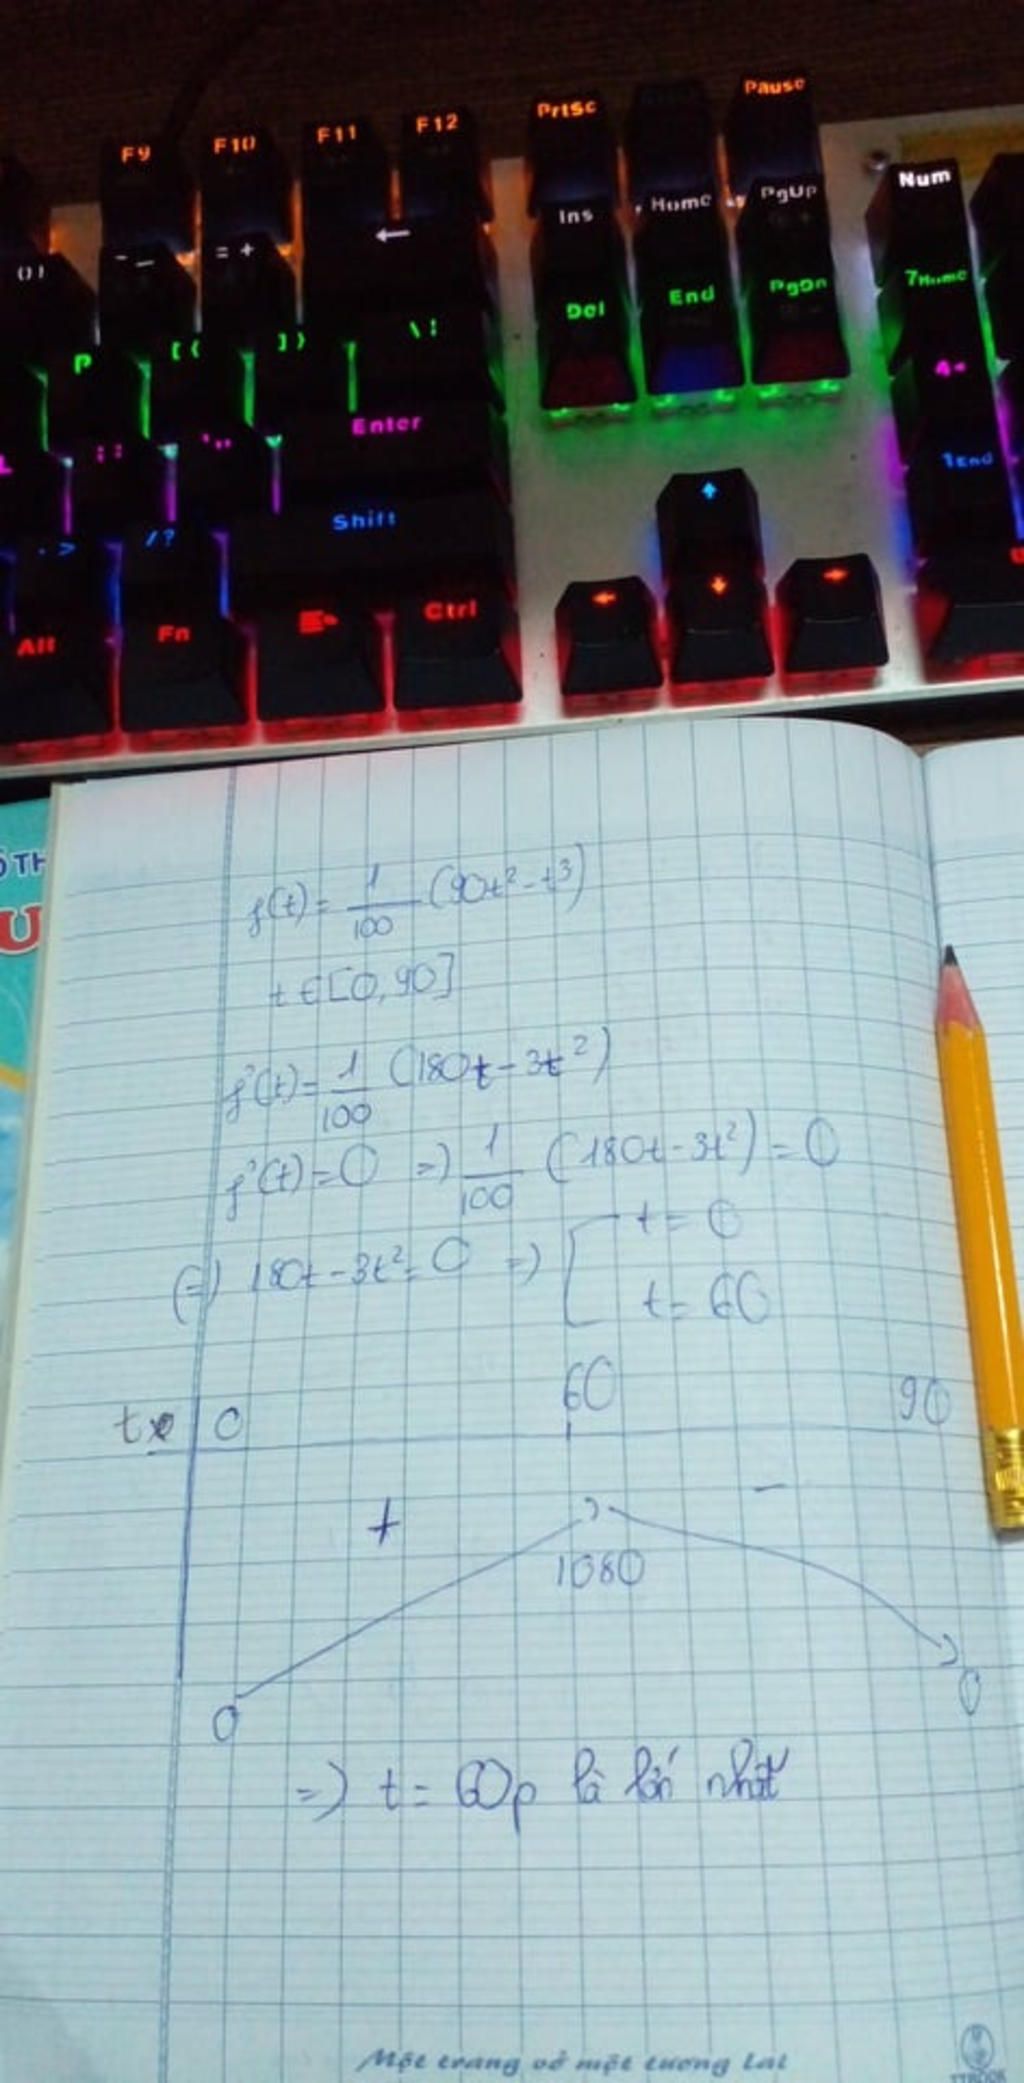 F9 F10 F11 F12 PrtSc Pause
- _ = + ← Ins Home PgUp Num
P [ { ] } \ | Del End PgDn 7Home
Enter 4
1End
. > / ? Shift ↑
Alt Fn Ctrl ← ↓ →
U
f(t) = 1/100 (90t² - t³)
t ∈ [0,90]
f'(t) = 1/100 (180t - 3t²)
f'(t) = 0 => 1/100 (180t - 3t²) = 0
(=) 180t - 3t² = 0 => [ t = 0
t = 60
t 0 60 90
+ -
1080
0 0
=) t = 60p là lớn nhất
Một trang vở một tương lai